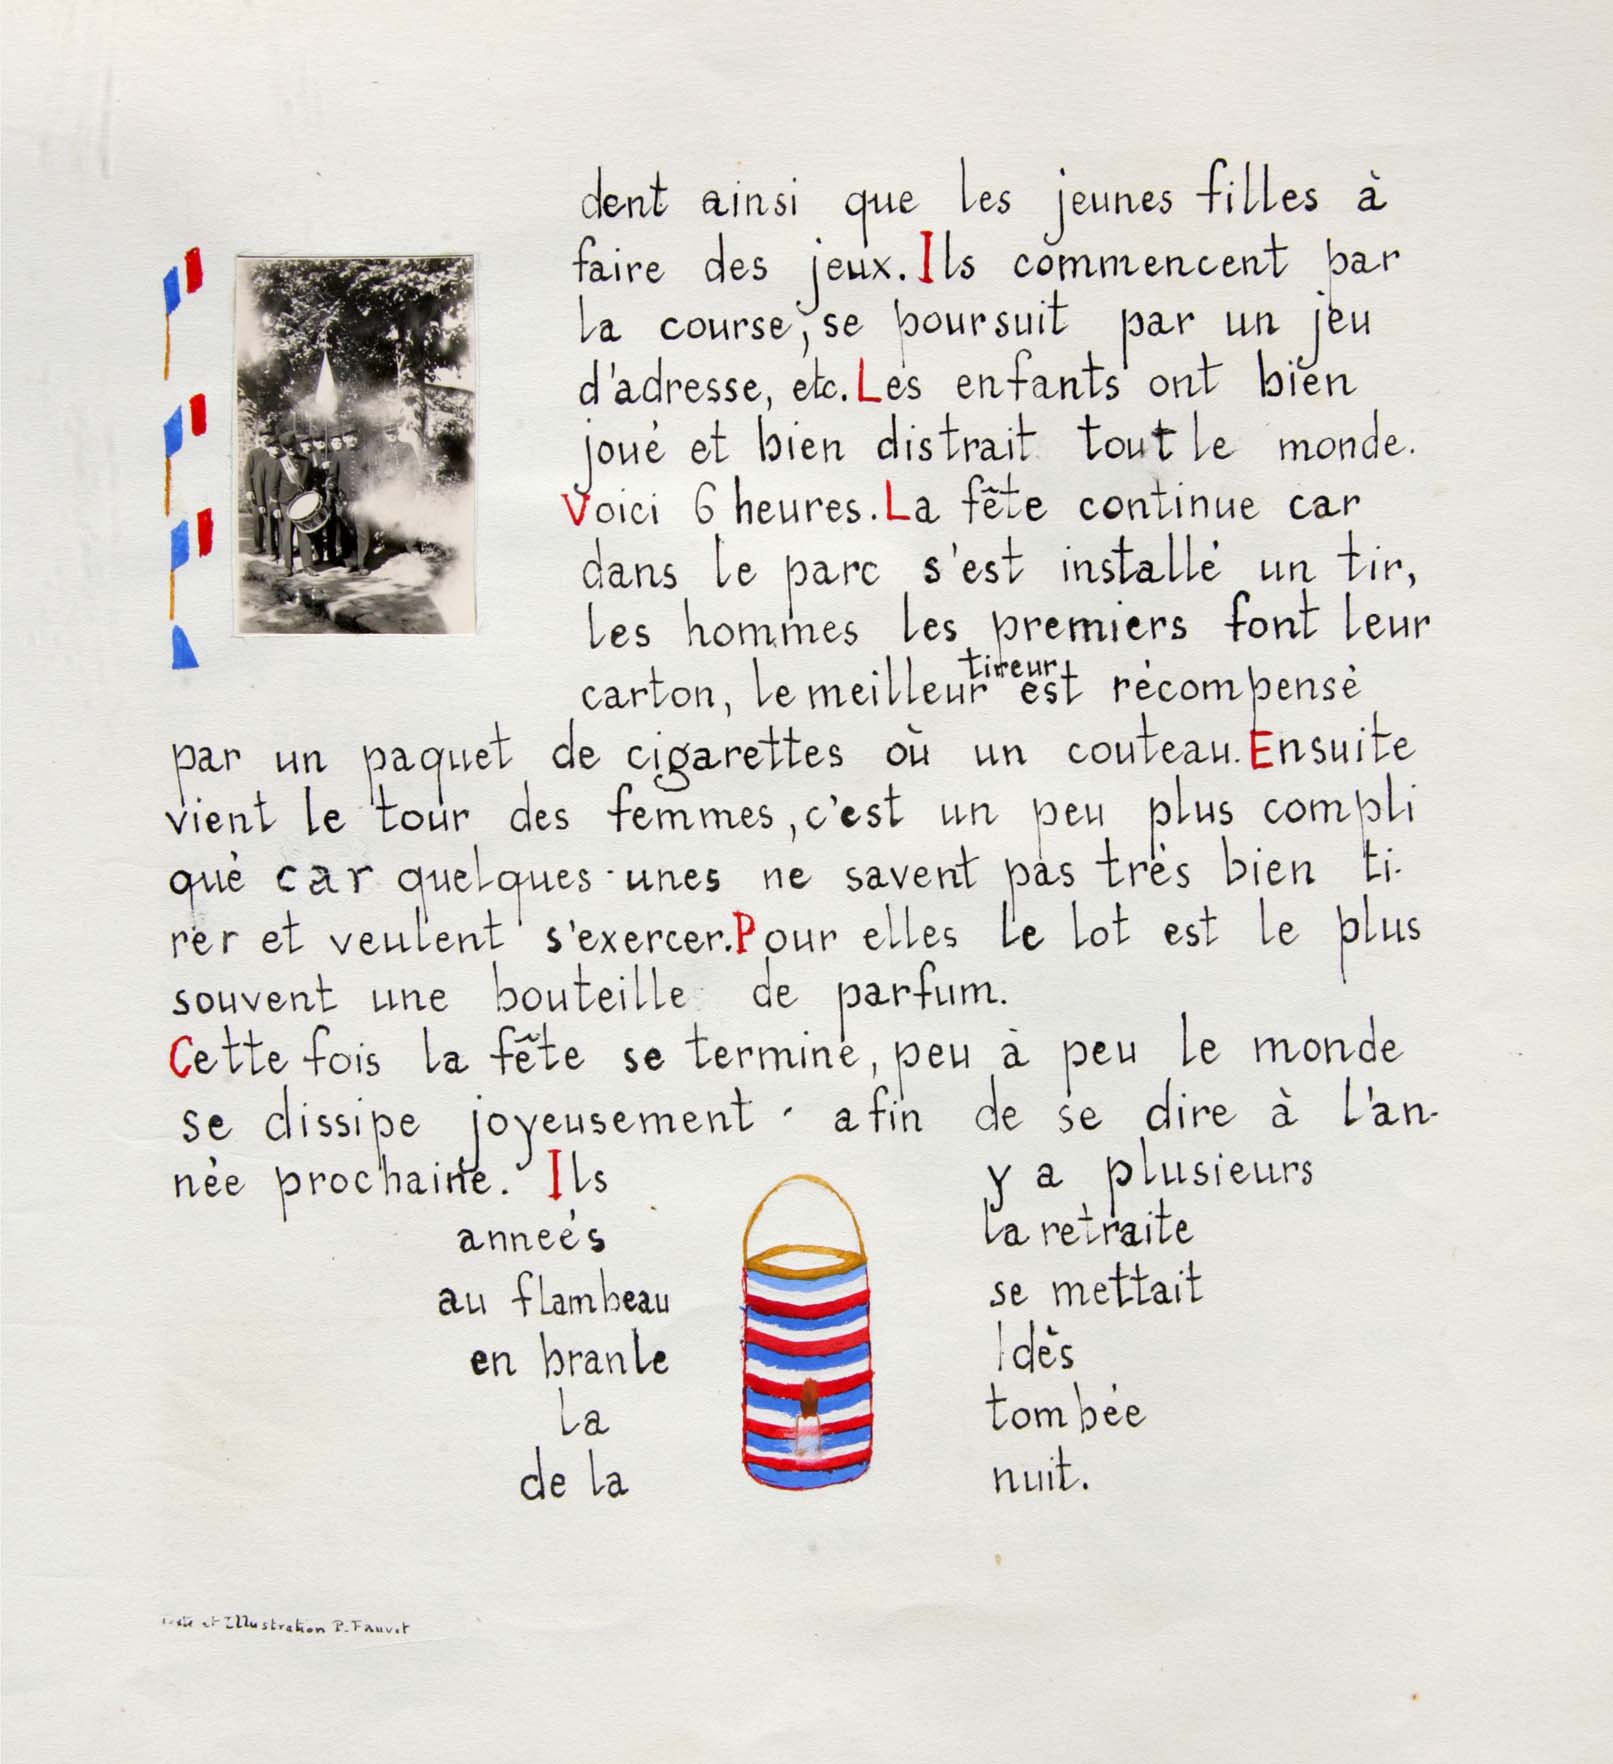 dent ainsi que les jeunes filles à
faire des jeux. Ils commencent par
la course, se poursuit par un jeu
d'adresse, etc. Les enfants ont bien
joué et bien distrait tout le monde.
Voici 6 heures. La fête continue car
dans le parc s'est installé un tir,
les hommes les premiers font leur
carton, le meilleur tireur est récompensé
par un paquet de cigarettes où un couteau. Ensuite
vient le tour des femmes, c'est un peu plus compli
qué car quelques-unes ne savent pas très bien ti-
rer et veulent s'exercer. Pour elles le lot est le plus
souvent une bouteille de parfum.
Cette fois la fête se termine, peu à peu le monde
se dissipe joyeusement - afin de se dire à l'an-
née prochaine. Ils y a plusieurs
anneés la retraite
au flambeau se mettait
en branle dès
la tombée
de la nuit.
Texte et Illustration P. Fauvet